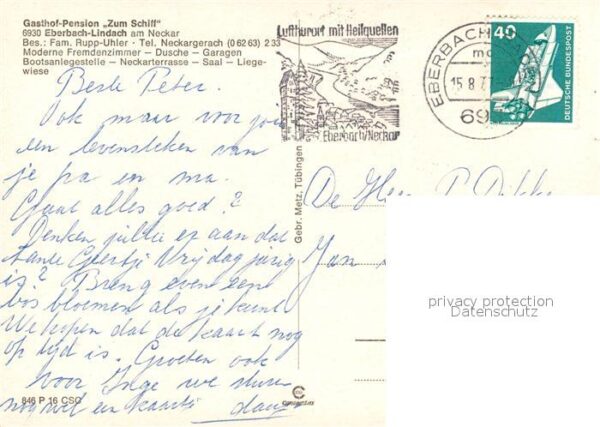 Gasthof-Pension „Zum Schiff"
6930 Eberbach-Lindach am Neckar
Bes.: Fam. Rupp-Uhler · Tel. Neckargerach (0 62 63) 2 33
Moderne Fremdenzimmer — Dusche — Garagen
Bootsanlegestelle — Neckarterrasse — Saal — Liege-
wiese
Luftkurort mit Heilquellen
Eberbach/Neckar
EBERBACH
15.8.77
69
40
DEUTSCHE BUNDESPOST
Beste Peter.
Ook maar voor jou
een levensteken van
je pa en ma.
Gaat alles goed?
Denken jullie er aan dat
tante Geertje Vrijdag jarig
is? Breng even een
bos bloemen als je kunt
We hopen dat de kaart nog
op tijd is. Groeten ook
voor Inge we sturen
nog wel een kaart
De Heer P.
Jan
Gebr. Metz, Tübingen
privacy protection
Datenschutz
846 P 16 CSC